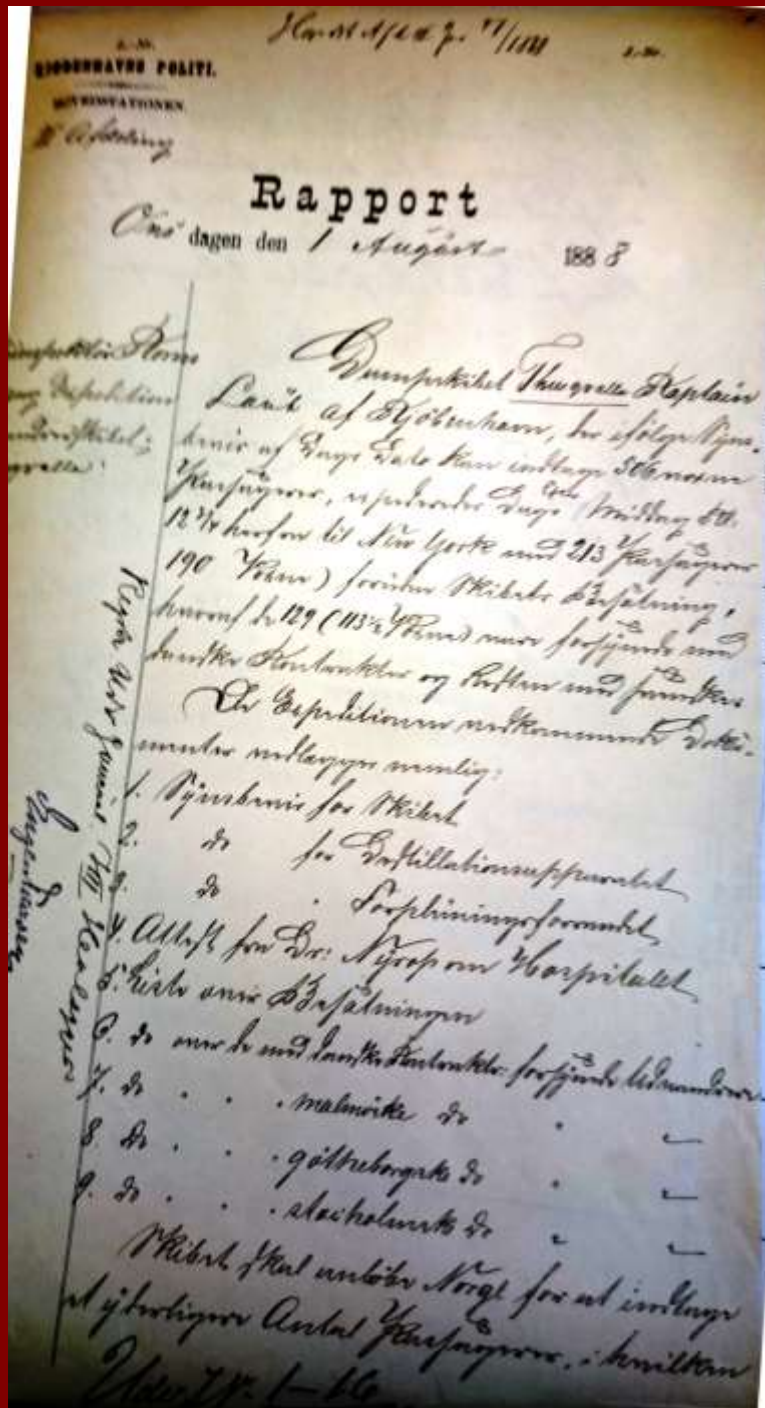 KJØBENHAVNS POLITI.
HOVEDSTATIONEN
Afdeling
Rapport
Ons dagen den 1 August 1888
Dampskibet Thingvalla Kaptain
Laub af Kjöbenhavn, der ifölge Syns-
beviis af Dags Dato kan indtage 506 voxne
Passagerer, expederedes Dags Middag Kl.
12 3/4 herfra til New York med 213 Passagerer
190 Voxne) foruden Skibets Besætning,
hvoraf de 129 (113 1/2 Voxne) vare forsynede med
danske Kontrakter og Resten med svenske
De Expeditionen vedkommende Doku-
menter vedlægges nemlig:
1. Synsbeviis for Skibet
2. do for Destillationsapparatet
3. do " Forpleiningsforraadet
4. Attest fra Dr: Nyrop om Hospitalet
5. Liste over Besætningen
6. do over de med danske Kontrakter forsynede Udvandrere
7. do " " " malmöske do " "
8 do " " " götteborgske do " "
9. do " " " stockholmske do " "
Skibet skal anløbe Norge for at indtage
et yderligere Antal Passagerer, i hvilken